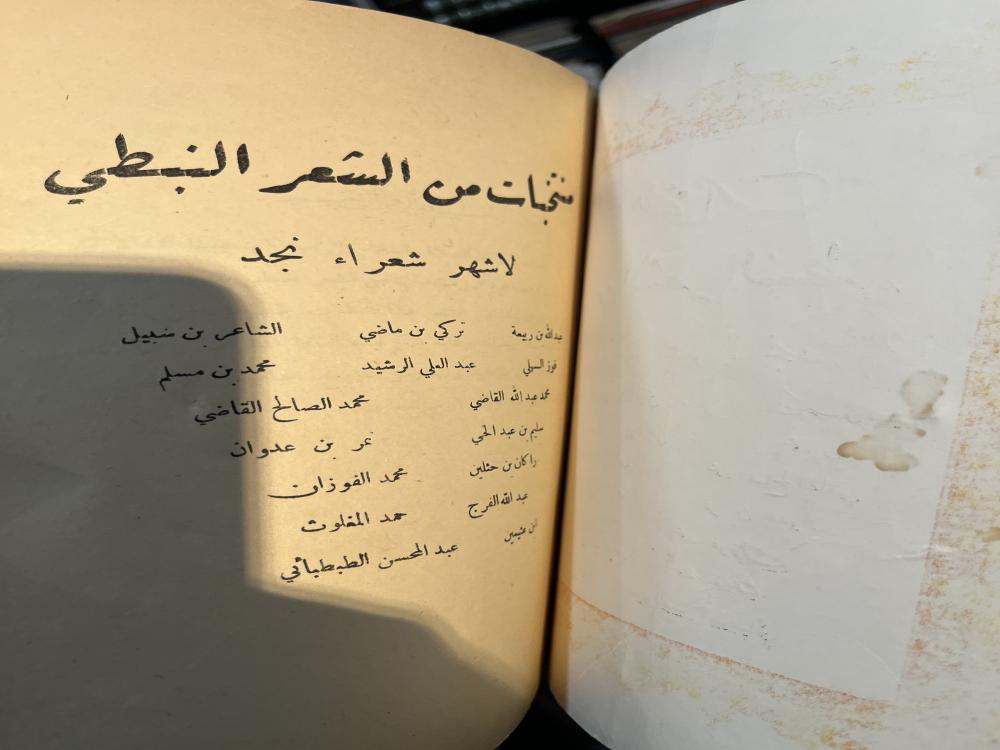 منتخبات من الشعر النبطي
لاشهر شعراء نجد
عبدالله بن ربيعة تركي بن ماضي الشاعر بن سبيل
فوز السولي عبد العلي الرشيد محمد بن مسلم
محمد عبد الله القاضي محمد الصالح القاضي
سليم بن عبد الحي نمر بن عدوان
راكان بن حثلين محمد الفوزان
عبد الله الفرج حمد المغلوث
ابن عثيمين عبد المحسن الطبطبائي